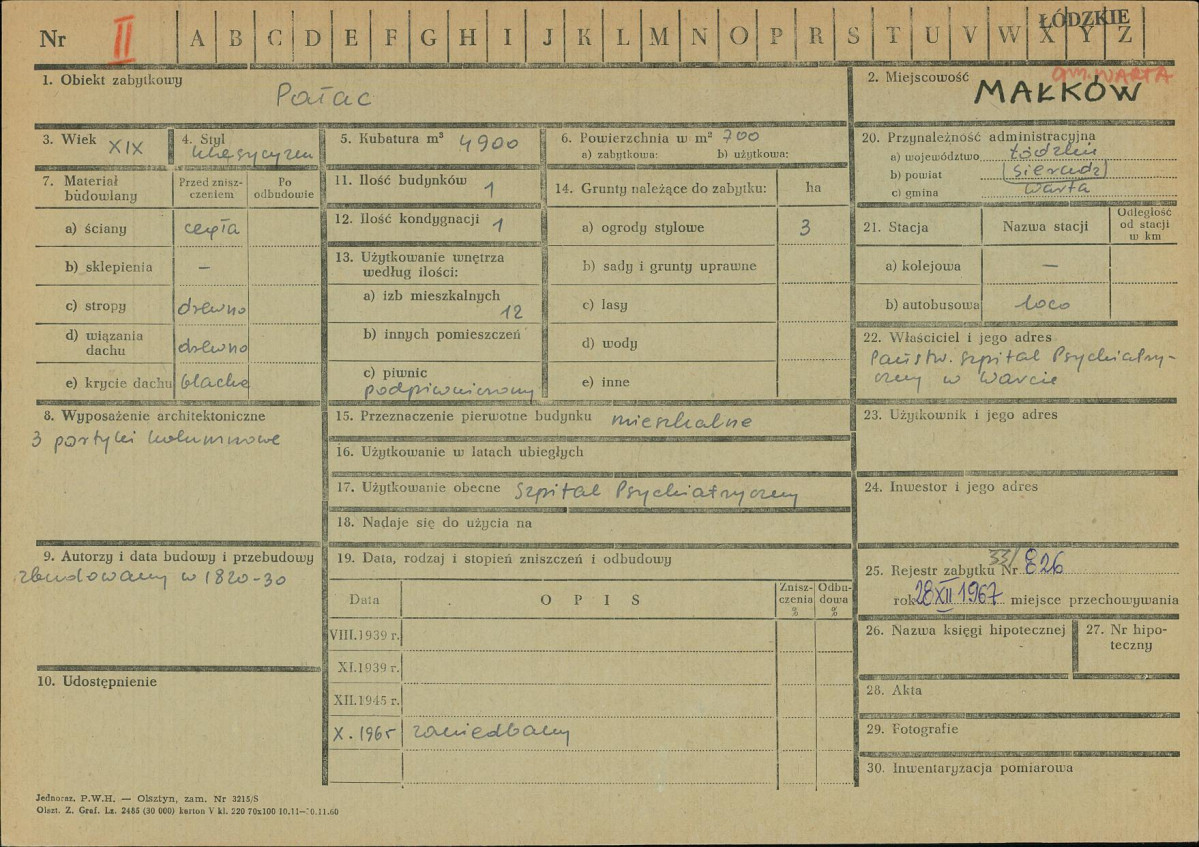 Nr II A B C D E F G H I J K L M N O P R S T U V W X Y Z
ŁÓDZKIE
1. Obiekt zabytkowy
Pałac
2. Miejscowość
gm. WARTA
MAŁKÓW
3. Wiek XIX
4. Styl
klasycyzm
5. Kubatura m³ 4900
6. Powierzchnia w m² 700
a) zabytkowa: b) użytkowa:
20. Przynależność administracyjna
a) województwo łódzkie
b) powiat sieradz
c) gmina Warta
7. Materiał budowlany
Przed znisz-
czeniem
Po
odbudowie
a) ściany cegła
b) sklepienia —
c) stropy drewno
d) wiązania
dachu drewno
e) krycie dachu blacha
11. Ilość budynków 1
12. Ilość kondygnacji 1
13. Użytkowanie wnętrza
według ilości:
a) izb mieszkalnych
12
b) innych pomieszczeń
c) piwnic
podpiwniczony
14. Grunty należące do zabytku: ha
a) ogrody stylowe 3
b) sady i grunty uprawne
c) lasy
d) wody
e) inne
21. Stacja Nazwa stacji
Odległość
od stacji
w km
a) kolejowa —
b) autobusowa loco
22. Właściciel i jego adres
Państw. Szpital Psychiatry-
czny w Warcie
8. Wyposażenie architektoniczne
3 portyki kolumnowe
15. Przeznaczenie pierwotne budynku mieszkalne
16. Użytkowanie w latach ubiegłych
17. Użytkowanie obecne Szpital Psychiatryczny
18. Nadaje się do użycia na
23. Użytkownik i jego adres
24. Inwestor i jego adres
9. Autorzy i data budowy i przebudowy
zbudowany w 1820-30
19. Data, rodzaj i stopień zniszczeń i odbudowy
Data O P I S
Znisz-
czenia
%
Odbu-
dowa
%
VIII.1939 r.
XI.1939 r.
XII.1945 r.
X. 1965 zaniedbany
10. Udostępnienie
25. Rejestr zabytku Nr 826
rok 28 XII 1967 miejsce przechowywania
26. Nazwa księgi hipotecznej
27. Nr hipo-
teczny
28. Akta
29. Fotografie
30. Inwentaryzacja pomiarowa
Jednoraz. P.W.H. — Olsztyn, zam. Nr 3215/S
Olszt. Z. Graf. Lz. 2485 (30 000) karton V kl. 220 70x100 10.11—10.11.60